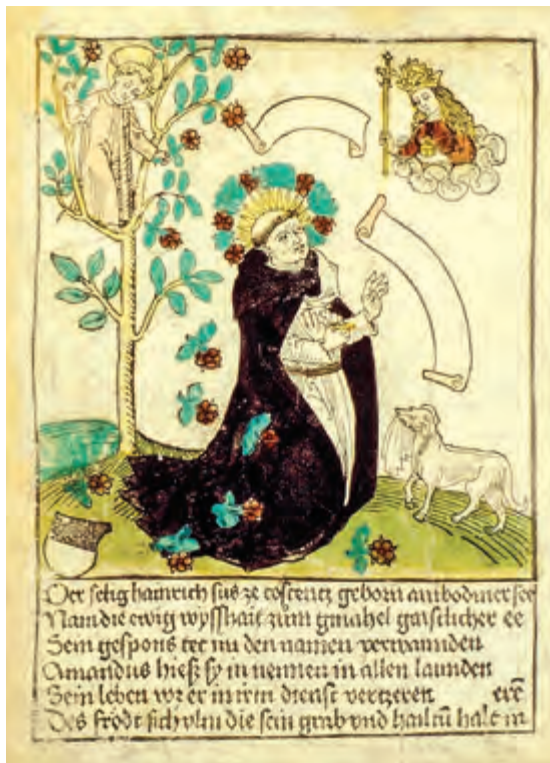 Der selig hainrich sus ze costentz geborn am bodmer see
Nam die ewig wyßhait zum gmahel gaistlicher ee
Sein gespons tet im den namen verwannden
Amandus hieß sy in nennen in allen launden
Sein leben wz er in irm dienst vertzeren erē
Des frödt sich vlm die sein grab vnd hailtū halt in